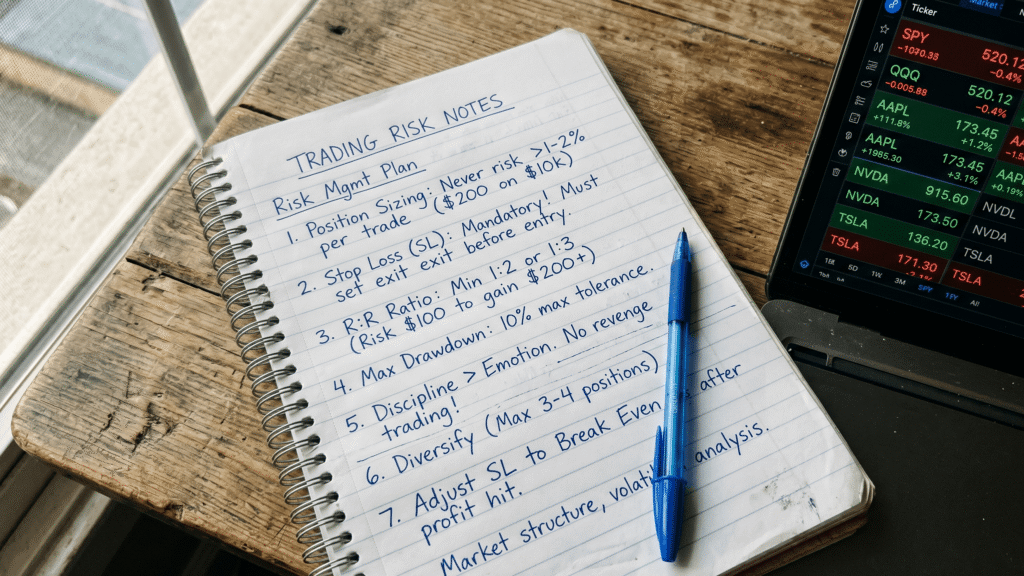 TRADING RISK NOTES
Risk Mgmt Plan
1. Position Sizing: Never risk >1-2%
per trade ($200 on $10k)
2. Stop Loss (SL): Mandatory! Must
set exit exit before entry.
3. R:R Ratio: Min 1:2 or 1:3
(Risk $100 to gain $200+)
4. Max Drawdown: 10% max tolerance.
5. Discipline > Emotion. No revenge
trading!
6. Diversify (Max 3-4 positions)
7. Adjust SL to Break Even after
profit hit.
Market structure, analysis.
Market
Ticker
SPY 520.12
-1070.38 -0.4%
QQQ 520.12
-0.005.88 -0.4%
AAPL 173.45
+111.8% +1.2%
AAPL 173.45
+1985.30 +3.1%
NVDA 915.60
NVDA 173.50
TSLA 136.20
TSLA 171.30
NVDL
NVDA
TSLA
TSLA
1M 5D 1W 3M SPY 1Y All